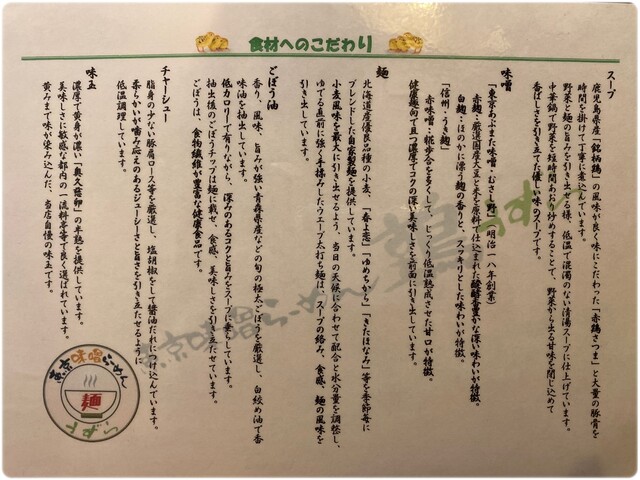 食材へのこだわり
スープ
鹿児島県産「銘柄鶏」の風味が良く味にこだわった「赤鶏さつま」と大量の豚骨を
時間を掛けて丁寧に煮込んでいます。
野菜と麺の旨みを引き出せる様、低温で混濁のない清湯スープに仕上げています。
中華鍋で野菜を短時間あおり炒めすることで、野菜から出る甘味を閉じ込めて
香ばしさを引き立てた優しい味のスープです。
味噌
「東京あふたまた味噌・むさし野」(明治一八年創業)
赤麹：厳選国産大豆と米を原料で仕込まれた醗酵香豊かな深い味わいが特徴。
白麹：ほのかに漂う麹の香りと、スッキリとした味わいが特徴。
「信州・うき麹」
赤味噌：糀歩合を多くして、じっくり低温熟成させた甘口が特徴。
健康趣向で且つ濃厚でコクの深い美味しさを前面に引き出しています。
麺
北海道産優良品種の小麦、「春よ恋」「ゆめちから」「きたほなみ」等を季節毎に
ブレンドした自家製麺を提供しています。
小麦風味を最大に引き出せるよう、当日の天候に合わせて配合と水分量を調整し、
ゆでる直前に強く手揉みしたウエーブ太打ち麺は、スープの絡み、食感、麺の風味を
引き出しています。
ごぼう油
香り、風味、旨みが強い青森県産などの旬の極太ごぼうを厳選し、白絞め油で香
味油を抽出しています。
低カロリーで有りながら、深みのあるコクと旨みをスープに乗らしています。
抽出後のごぼうチップは麺に載せ、食感、美味しさを引き立たせています。
ごぼうは、食物繊維が豊富な健康食品です。
チャーシュー
脂身の少ない豚肩ロース等を厳選し、塩胡椒をして醤油だれにつけ込んでいます。
柔らかいが噛み応えのあるジューシーさと旨さを引き立たせるように
低温調理しています。
味玉
濃厚で黄身が濃い「奥久慈卵」の半熟を提供しています。
美味しさに敏感な都内の一流料亭等で良く選ばれています。
黄みまで味が染み込んだ、当店自慢の味玉です。
東京味噌らーめん
東京味噌らーめん
麺